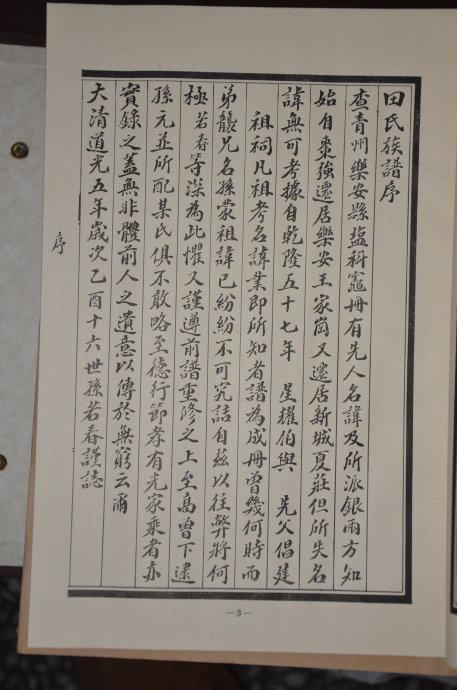 田氏族譜序
查青州樂安縣塩科竈冊有先人名諱及所派銀兩方知
始自棗強遷居樂安王家崗又遷居新城夏莊但所失名
諱無可考據自乾隆五十七年 星耀伯與 先父倡建
祖祠凡祖考名諱業即所知者譜為成冊曾幾何時而
弟襲兄名孫蒙祖諱已紛紛不可究詰自茲以往弊將何
極若春等深為此懼又謹遵前譜重修之上至高曾下逮
孫元並所配某氏俱不敢略至德行節孝有光家乘者亦
實錄之蓋無非體前人之遺意以傳於無窮云爾
大清道光五年歲次乙酉十六世孫若春謹誌
序
—3—